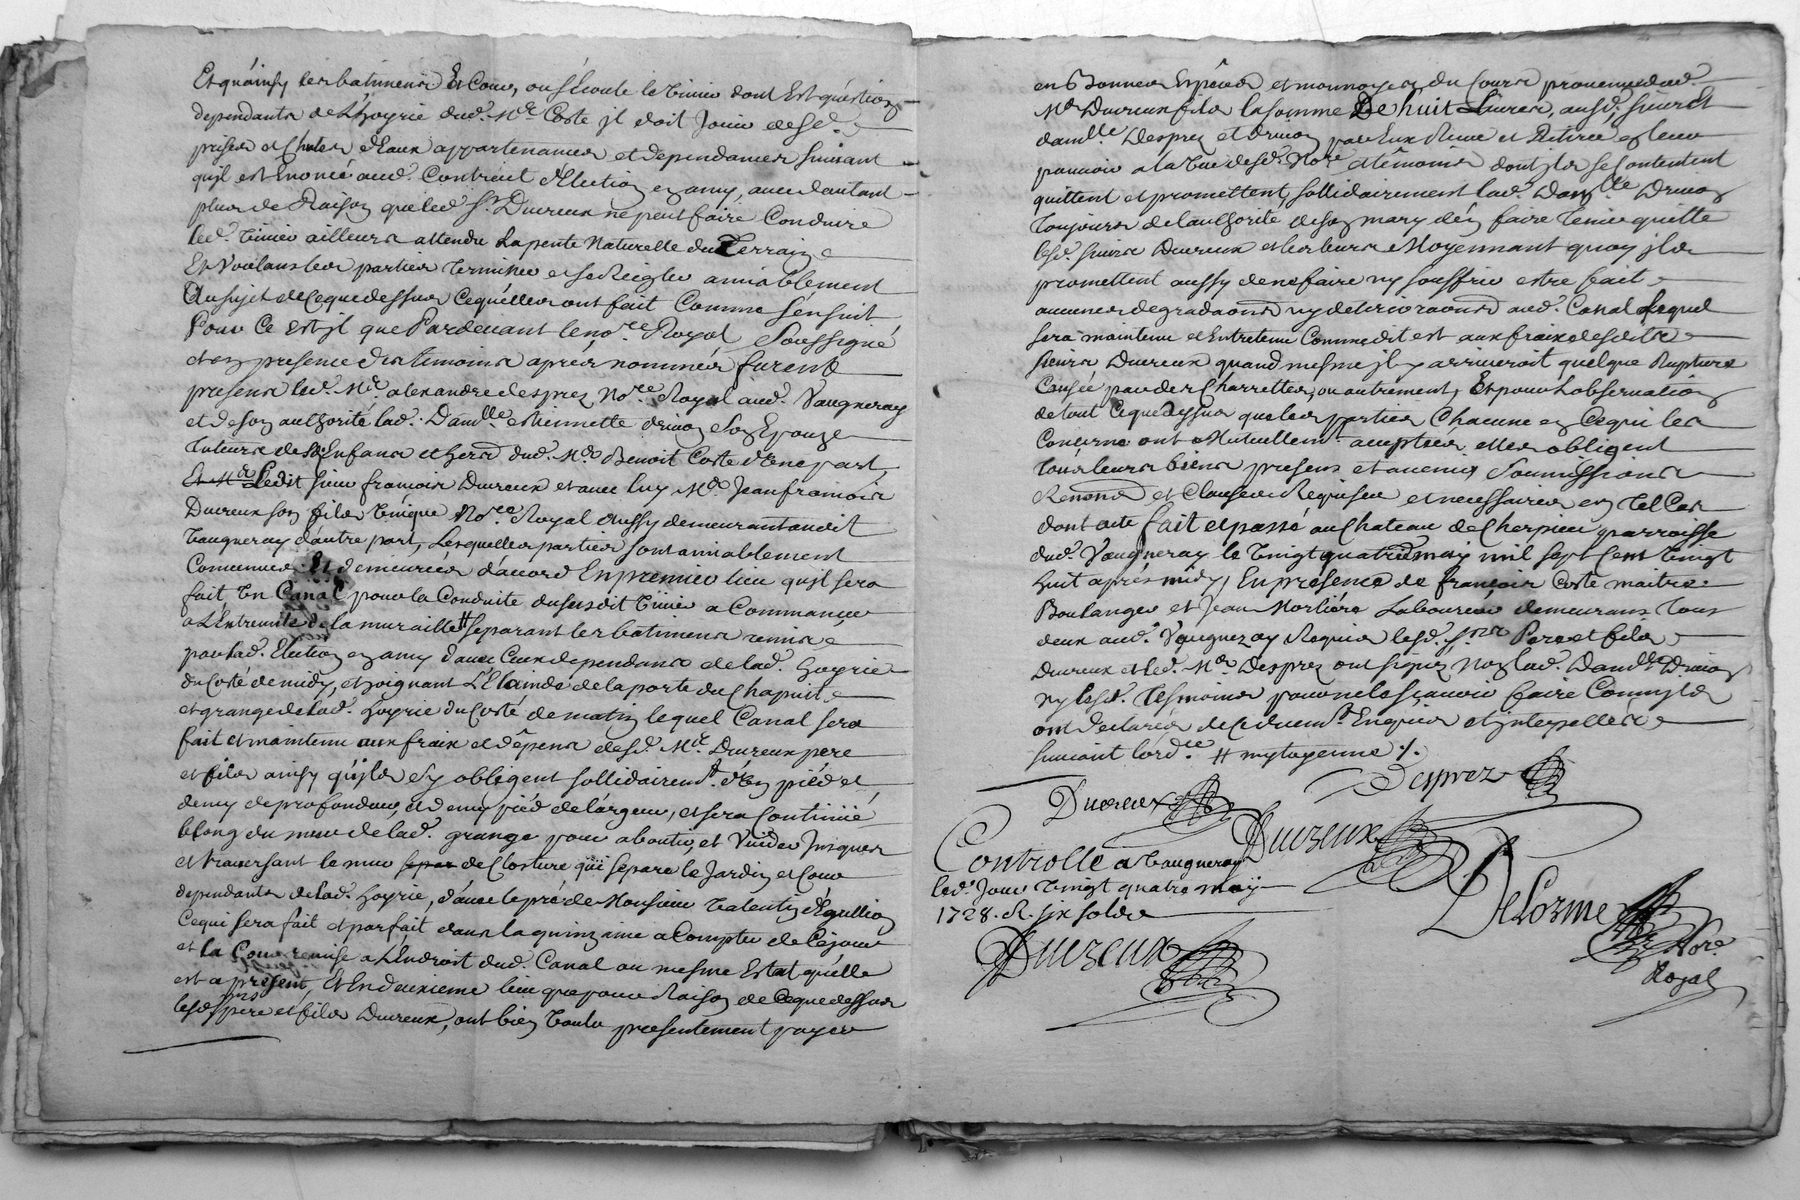 Et quáinsy les batimens Et Cour, ou s'écoule le vivier dont Est question
dependants de L'hoyrie dud. Mr Coste jl doit Jouir desd.
prises et chutes d'Eaux appartenances et dependances suivant
qu'jl est Enoncé aud. Contract d'Election en amy, avec d'autant
plus de Raison que led. Sr Ducreux ne peut faire Conduire
led. vivier ailleurs attendu La pente Naturelle du Terrain
Et voulans les parties Terminer et se Reigler amiablement
Au sujet de Ce que dessus Ce qu'elles ont fait Comme s'ensuit
Pour Ce Est jl que Pardevant le nore Royal Soussigné
et en presence des temoins aprés nommés furent
presens led. Mr alexandre desprez Nore Royal aud. Vaugneray
et de son authorité lad. Damlle estiennette drivon Son Epouze
Tuteurs des Enfans et hers dud. Mr Benoit Coste d'Une part,
Ledit sieur francois Ducreux et avec luy Mr Jean francois
Ducreux son fils Unique Nore Royal Aussy demeurant audit
Vaugneray d'autre part, Lesquelles parties sont amiablement
Convenues Et demeurées d'acord En premier lieu qu'jl sera
fait Un Canal pour la Conduite du susdit vivier a Commancer
a L'Entremité de la muraille # separant les batimens remis
par lad. Election en amy d'avec Ceux dependans de lad. hoyrie
du Costé de midy, et joignant L'Elande de la porte du Chapuit
et grange de lad. hoyrie du Costé de matin lequel Canal sera
fait et maintenu aux fraix et dêpens desd. Mrs Ducreux pere
et fils ainsy qu'jls s'y obligent sollidairemt d'Un pied et
demy de profondeur, et demy pied de largeur, et sera Continué
le long du mur de lad. grange pour aboutir et Vuider Jusques
et traversant le mur de Closture qui separe le Jardin et Cour
dependants de lad. hoyrie, d'avec le pré de Monsieur Valentin d'Eguillion
Ce qui sera fait et parfait dans la quinzaine a Compter de Cejour
et la Cour remise a L'Endroit dud. Canal au mesme Estat qu'elle
est a present, Et En deuxieme lieu que pour Raison de Ce que dessus
lesd. srs pere et fils Ducreux, ont bien Voulu presentement payer
en Bonnes Espéces et monnoyes du Cours provenues dud.
Mr Ducreux fils la somme De huit Livres, ausd. sieur et
damlle Desprez et drivon par Eux Reçue et Retirée en leur
pouvoir a la vue desd. Nore et têmoins dont jls se Contentent
quittent et promettent sollidairement lad. Damlle Drivon
Toujours de l'authorité de son mary d'en faire Tenir quitte
lesd. sieurs Ducreux et les leurs Moyennant quoy jls
promettent aussy de ne faire ny souffrir estre fait
aucunes degradaons ny deteriorâons aud. Canal Lequel
sera maintenu et Entretenu Comme dit est aux fraix desdits
sieurs Ducreux quand mesme jl y arriveroit quelque Rupture
Causée par des Charrettes, ou autrement, Et pour L'observation
de tout Ce que dessus que les parties Chacune en Ce qui les
Concerne ont Mutuellemt acceptées elles obligent
Tous leurs biens presens et avenir Soumissions
Renons et Clauses Requises et necessaires en tel Cas
dont acte fait et passé au Chateau de Cherpieu parroisse
dud. Vaugneray le Vingt quatre may mil sept Cent Vingt
huit aprés midy, En présence de françois Coste maitre
Boulanger et Jean Morliére Laboureur demeurans Tous
deux aud. Vaugneray Requis lesd. srs Pere et fils
Ducreux et led. Mr Desprez ont signez, Non lad. Damlle Drivon
ny lesd. tesmoins pour ne le sçavoir faire Comm'jls
ont declarés de Ce duemt Enquis et jnterpellés
suivant l'ordce # mytoyenne ./.
Desprez
Ducreux
Ducreux
Controlle a Vaugneray
led. Jour Vingt quatre may
1728. R. six solds
Ducreux
DeLorme
Nore
Royal